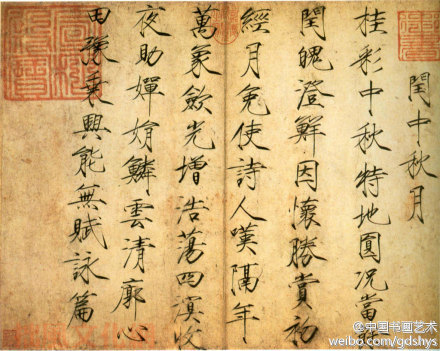 閏中秋月
桂彩中秋特地圓况當
閏魄澄鮮因懷勝賞初
經月免使詩人嘆隔年
萬象斂光增浩蕩四溟收
夜助嬋娟鱗雲清廓心
田豫乘興能無賦詠篇
@中国书画艺术
weibo.com/gdshys